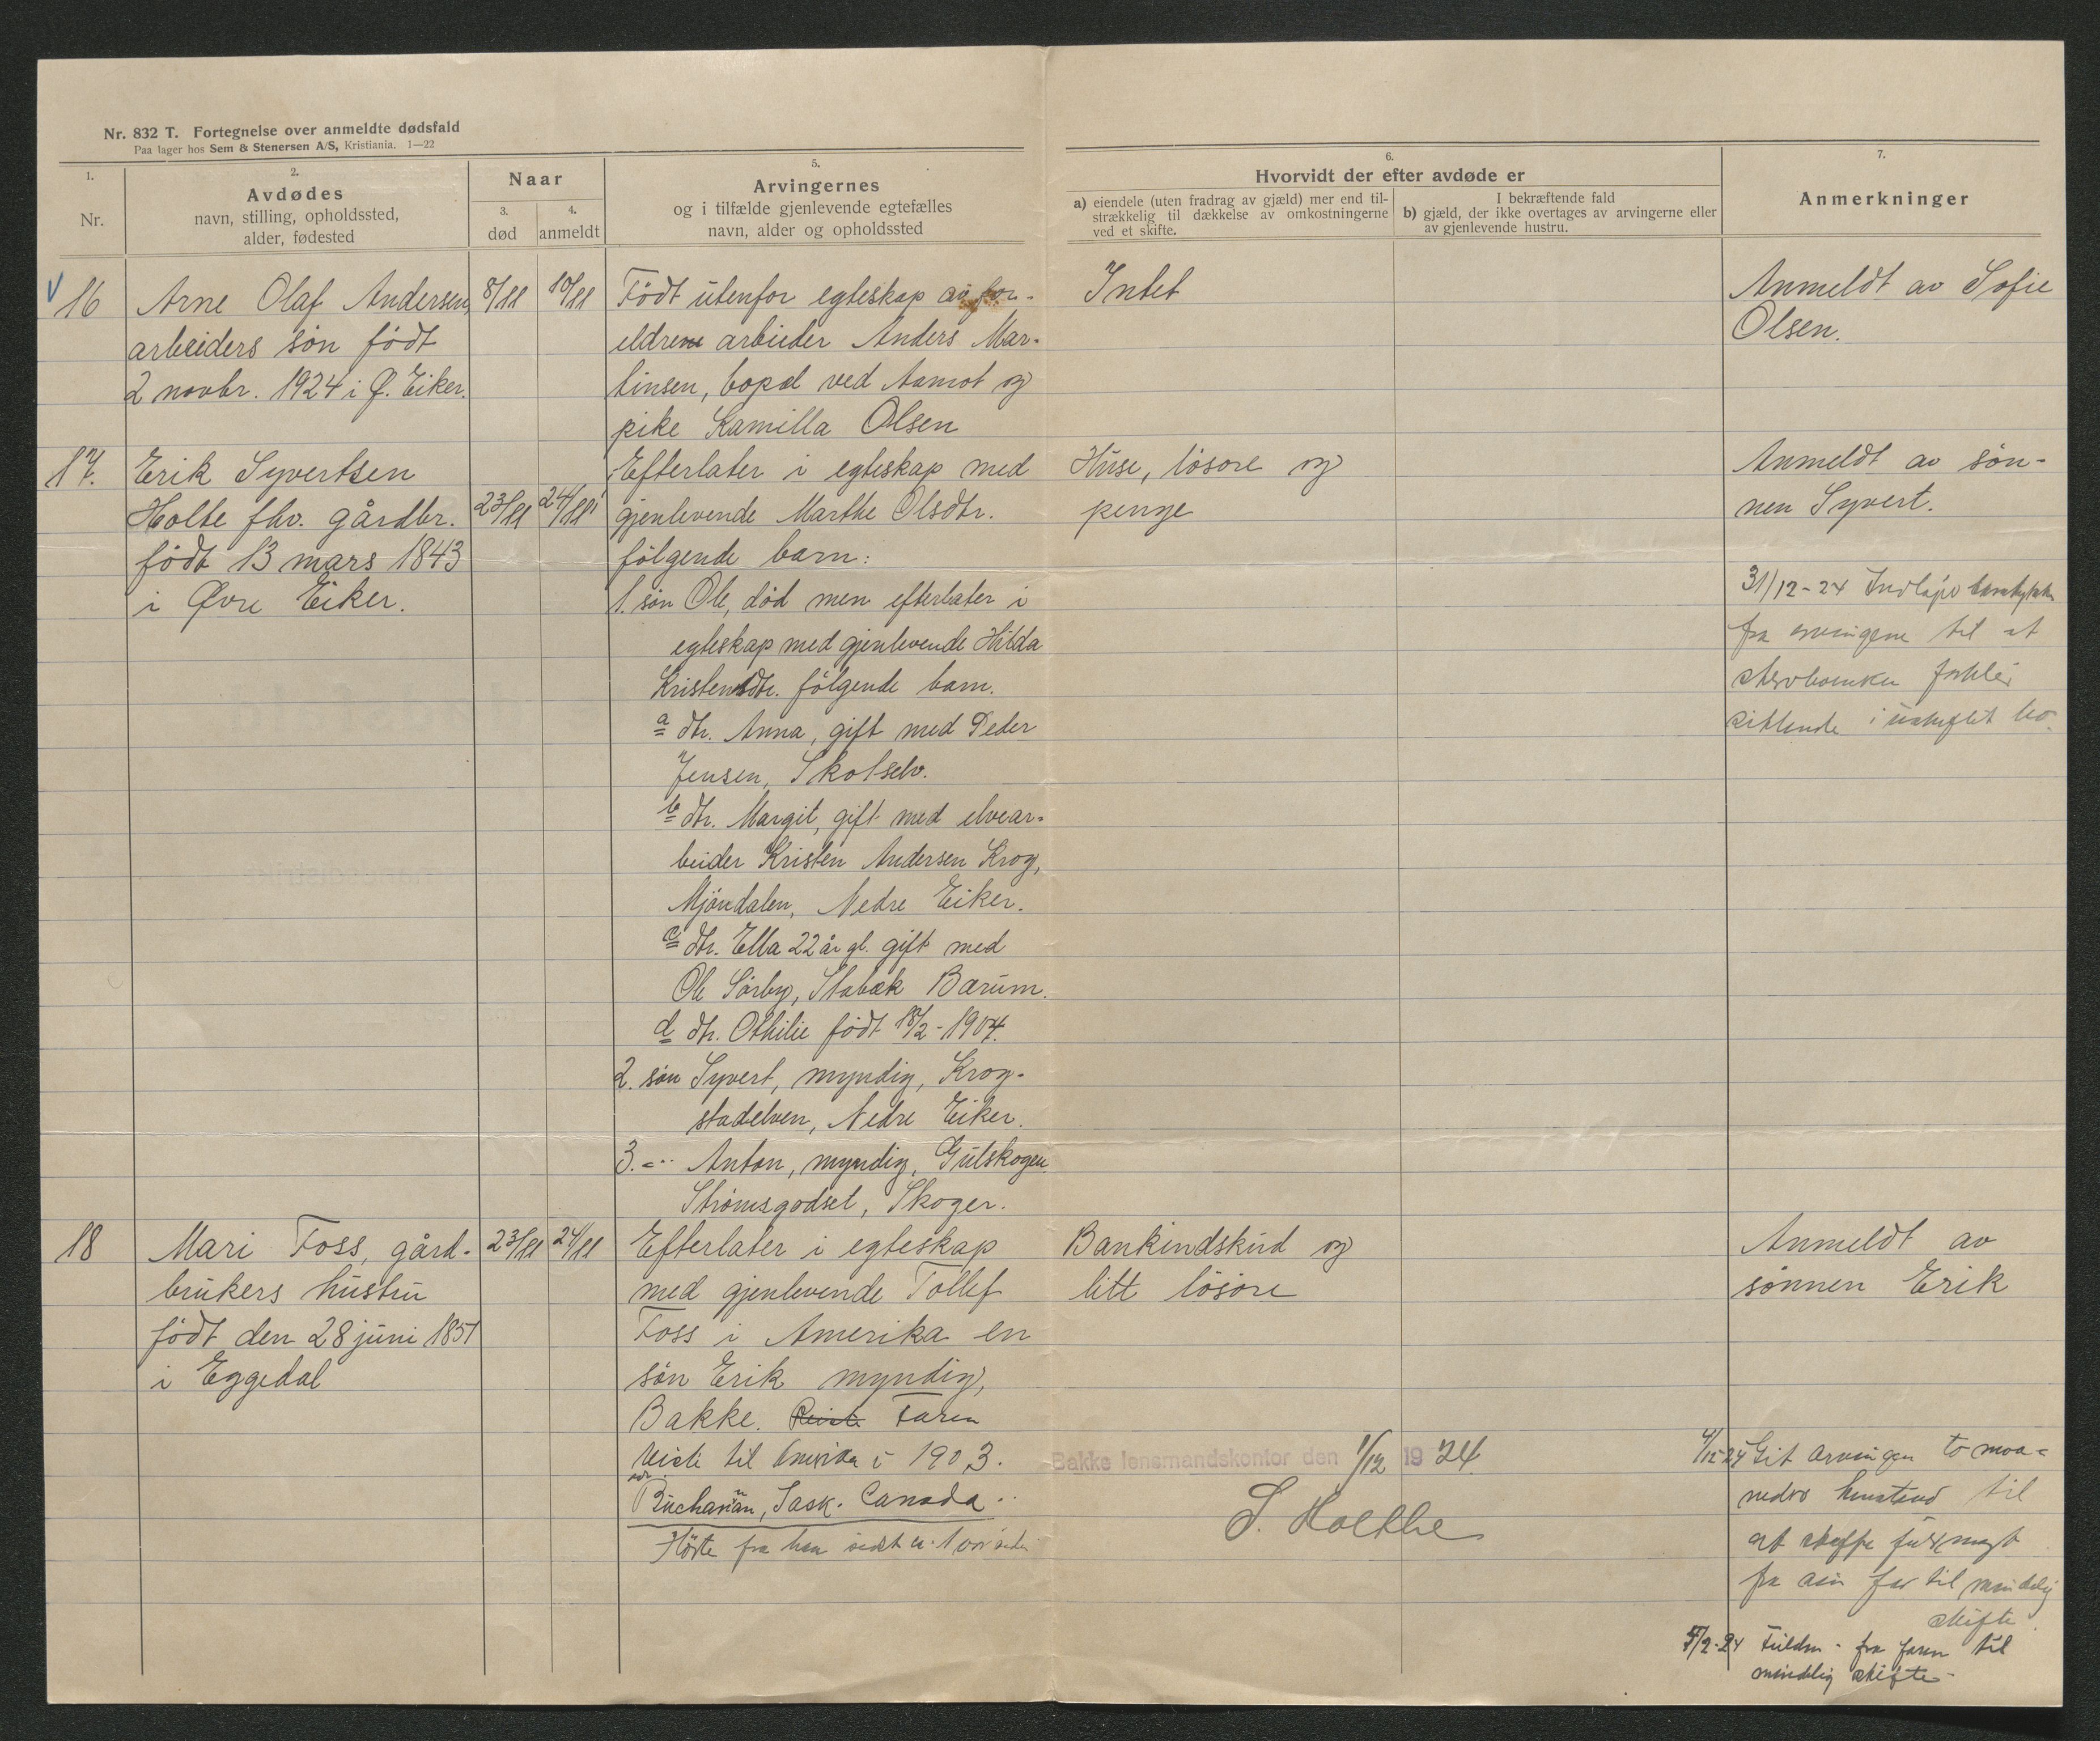 Nr. 832 T. Fortegnelse over anmeldte dødsfald
Paa lager hos Sem & Stenersen A/S, Kristiania. 1—22
1.
Nr.
2.
Avdødes
navn, stilling, opholdssted,
alder, fødested
Naar
3.
død
4.
anmeldt
5.
Arvingernes
og i tilfælde gjenlevende egtefælles
navn, alder og opholdssted
6.
Hvorvidt der efter avdøde er
a) eiendele (uten fradrag av gjæld) mer end til-
strækkelig til dækkelse av omkostningerne
ved et skifte.
I bekræftende fald
b) gjæld, der ikke overtages av arvingerne eller
av gjenlevende hustru.
7.
Anmerkninger
16
Arne Olaf Andersen,
arbeiders søn født
2 novbr. 1924 i Ø. Eiker.
8/11
10/11
Født utenfor egteskap av for-
eldrene arbieder Anders Mar-
tinsen, bopæl ved Aamot og
pike Kamilla Olsen
Intet
Anmeldt av Sofie
Olsen.
17.
Erik Syvertsen
Holte fhv. gårdbr.
født 13 mars 1843
i Øvre Eiker.
23/11
24/11
Efterlater i egteskap med
gjenlevende Marthe Olsdtr.
følgende barn:
1. søn Ole, død men efterlater i
egteskap med gjenlevende Hilda
Kristensdtr. følgende barn.
a dtr. Anna, gift med Peder
Jensen, Skotselv.
b dtr. Margit, gift med elvear-
beider Kristen Andersen Krog,
Mjøndalen, Nedre Eiker.
c dtr. Ella 22 år gl. gift med
Ole Sørby, Stabæk Bærum.
d dtr. Othilie født 18/2-1904.
2. søn Syvert, myndig, Krog-
stadelven, Nedre Eiker.
3. -"- Anton, myndig, Gulskogen
Strømsgodset, Skoger.
Huse, løsøre og
penge
Anmeldt av søn-
nen Syvert.
31/12-24 Indløper samtykke
fra arvingene til at
forblir
sittende i uskiftet bo.
18
Mari Foss, gård-
brukers hustru
født den 28 juni 1851
i Eggedal
23/11
24/11
Efterlater i egteskap
med gjenlevende Tollef
Foss i Amerika en
søn Erik myndig,
Bakke. Reiste Faren
reiste til Amerika i 1903.
adr.
Buchanan, Sask. Canada.
Hørte fra han sidst
Bankindskud og
litt løsøre
Anmeldt av
sønnen Erik
Bakke lensmandskontor den 1/12 1924
S. Holthe
4/12-24 Git arvingen to maa-
neders henstand til
at skaffe fuldmagt
fra sin far til mindelig
skifte.
5/2-24 Fuldm. fra faren til
mindelig skifte